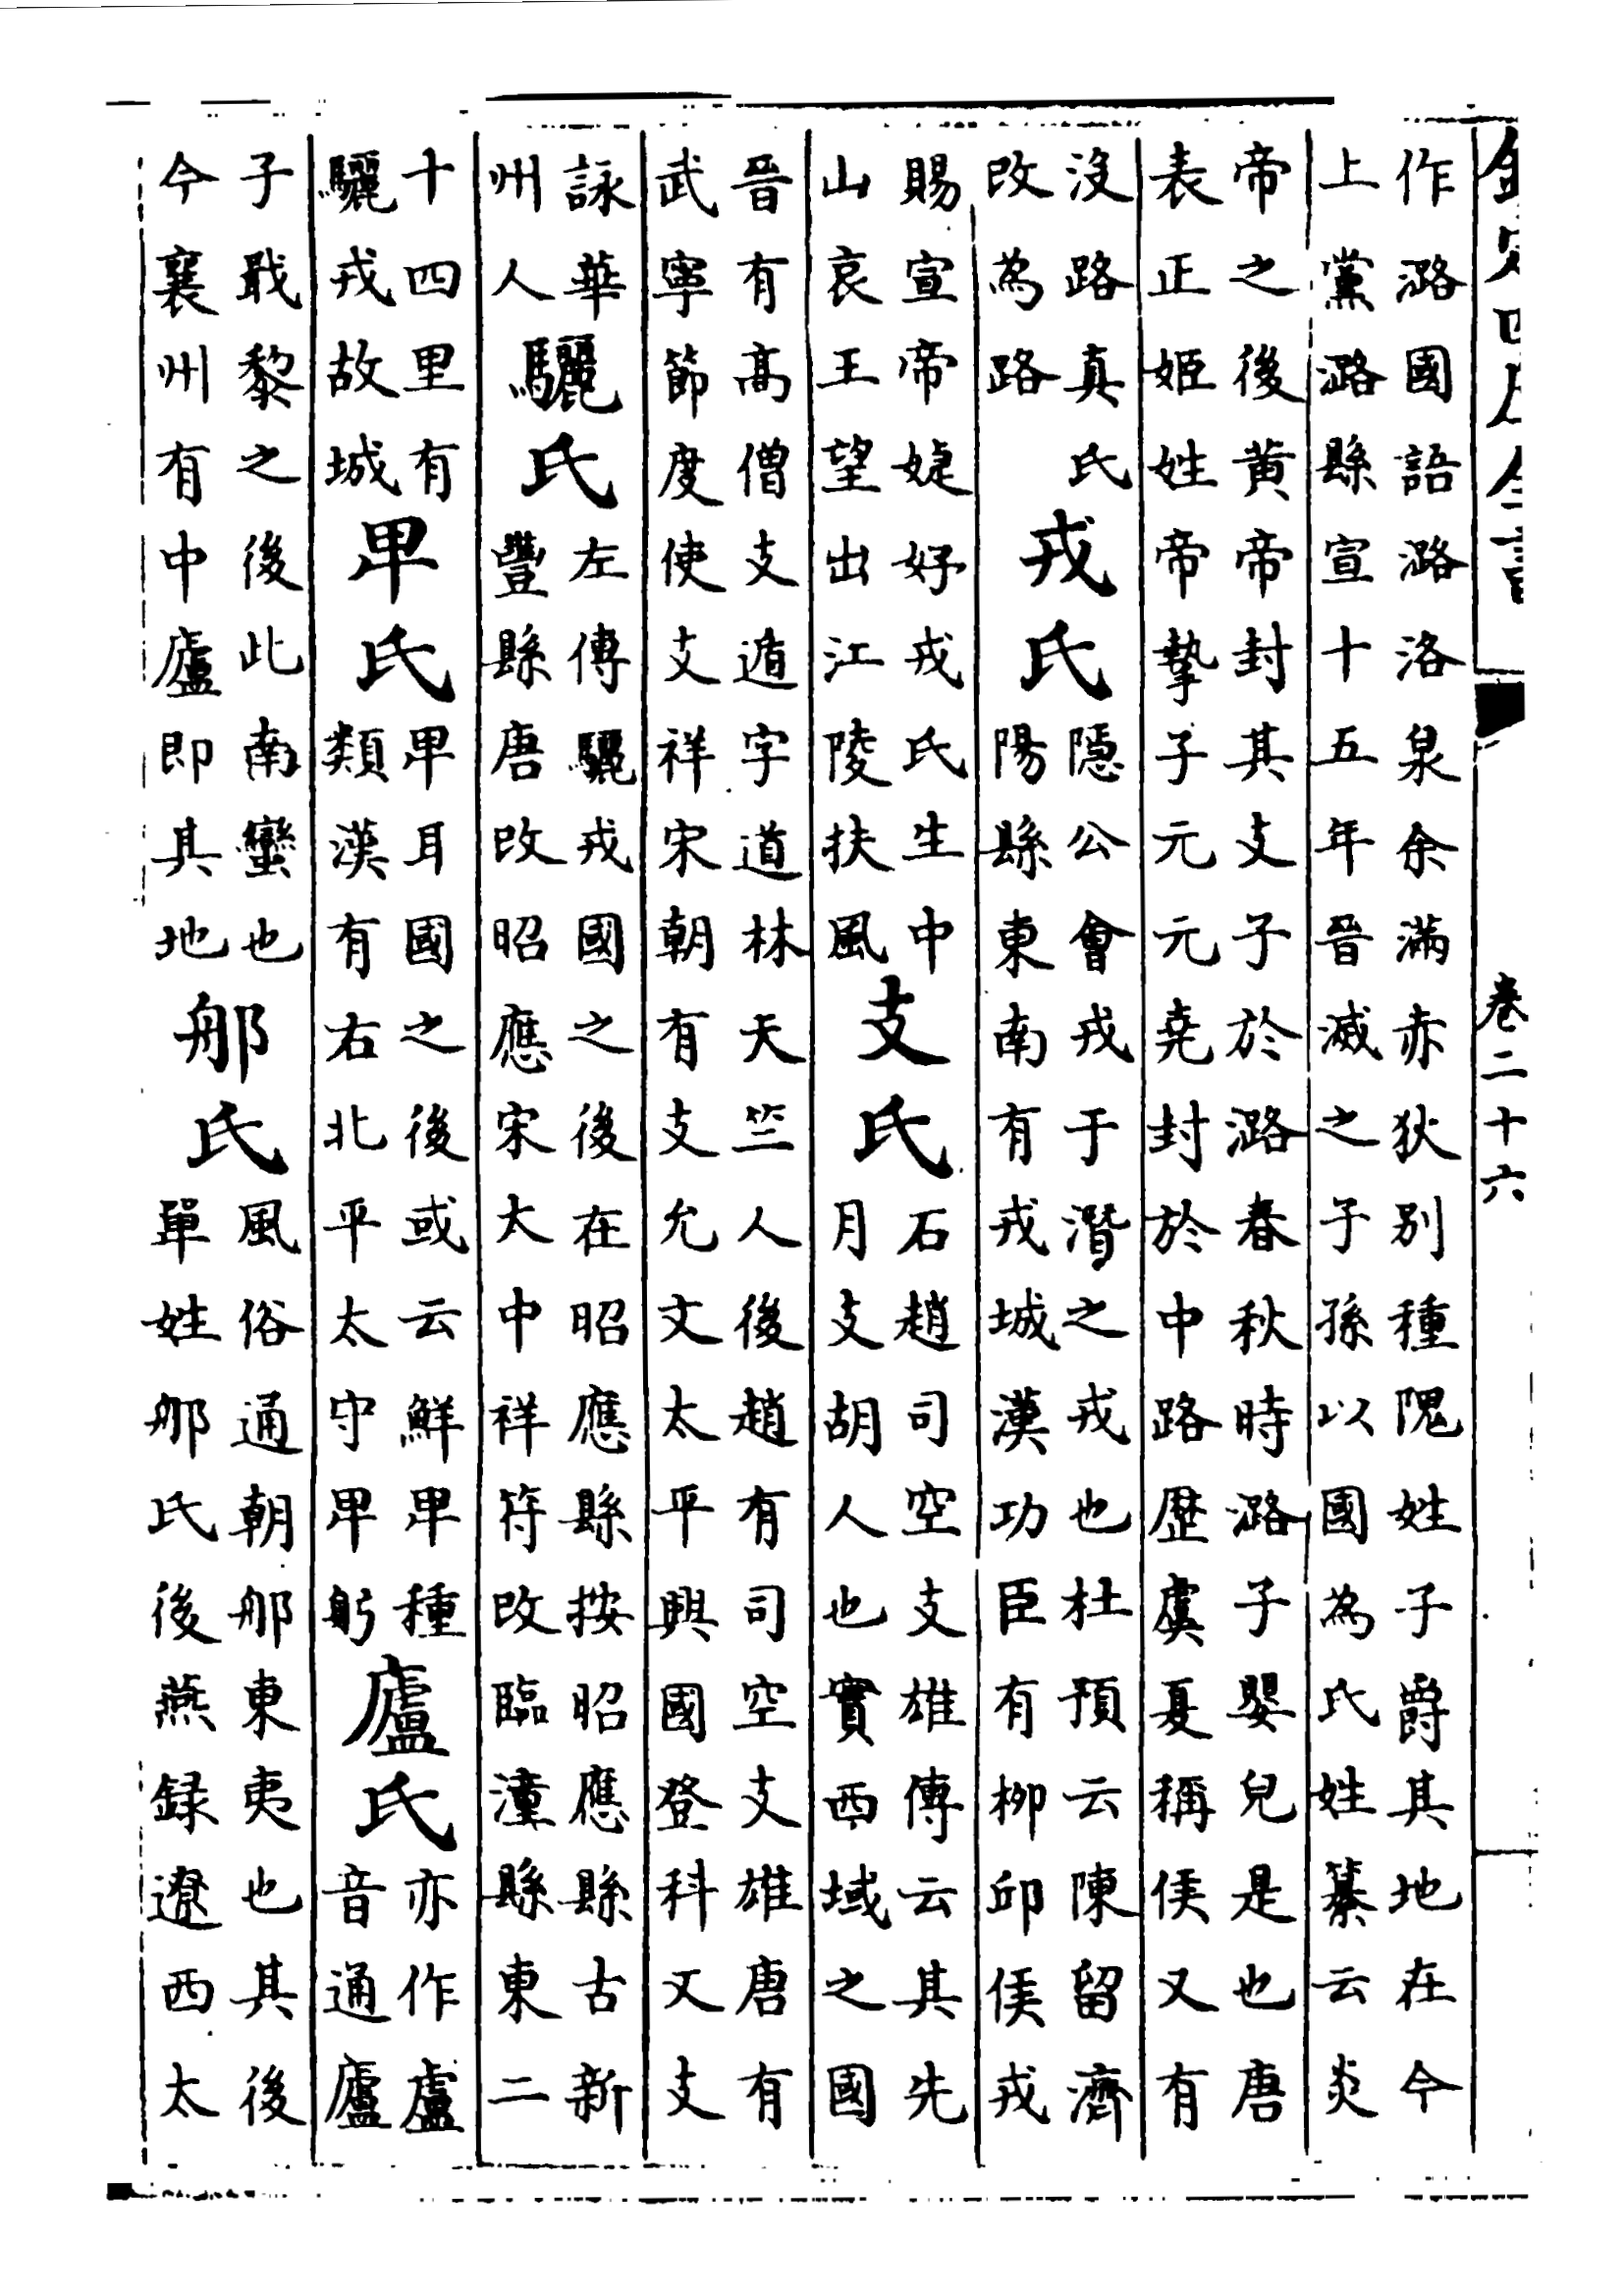 欽定四庫全書
卷二十六
作潞國語潞洛泉余滿赤狄别種隗姓子爵其地在今
上黨潞縣宣十五年晉滅之子孫以國為氏姓纂云炎
帝之後黄帝封其支子於潞春秋時潞子嬰兒是也唐
表正姬姓帝摯子元元堯封於中路歴虞夏稱侯又有
沒路真氏
改為路
戎氏
隱公會戎于潛之戎也杜預云陳留濟
陽縣東南有戎城漢功臣有栁邱侯戎
賜宣帝婕妤戎氏生中
山哀王望出江陵扶風
支氏
石趙司空支雄傳云其先
月支胡人也實西域之國
晉有髙僧支遁字道林天竺人後趙有司空支雄唐有
武寧節度使支祥宋朝有支允文太平興國登科又支
詠華
州人
驪氏
左傳驪戎國之後在昭應縣按昭應縣古新
豐縣唐改昭應宋大中祥符改臨潼縣東二
十四里有
驪戎故城
卑氏
卑耳國之後或云鮮卑種
類漢有右北平太守卑躬
廬氏
亦作盧
音通廬
子戢黎之後此南蠻也
今襄州有中廬即其地
郍氏
風俗通朝郍東夷也其後
單姓郍氏後燕録遼西太